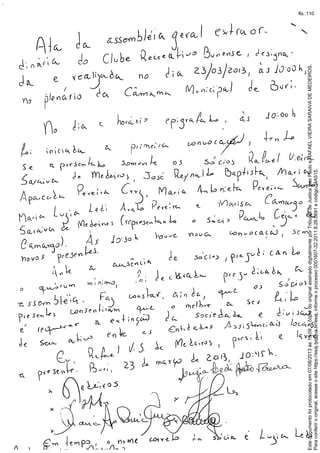 fls. 110
Ata da assembléia geral extraor-
dinária do Clube Recreativo Buriense, designa-
da e realizada no dia 23/03/2013, às 10:00h,
no plenário da Câmara Municipal de Buri.
No dia e horário epigrafado, às 10:00h
foi iniciada a primeira convocação, tendo
se apresentado somente os sócios Rafael Vieira
Saraiva de Medeiros, José Reynaldo Baptista, Maria
Aparecida Pereira Cruz, Maria Antonieta Pereira
Maria Luzia Ledi Arato Pereira e Marisa Camargo
Saraiva de Medeiros (representando o sócio Paulo César de
Camargo). Às 10:30h houve nova convocação, sem
novos presentes.
Ante a ausência de sócios, prejudicando
o quórum mínimo, foi declarada prejudicada a
assembléia. Faz constar, ainda, que os sócios
presentes consentiram que o melhor a ser feito
é requerer a extinção da sociedade e divisão
de seu ativo ente as Entidades Assistenciais locais.
Eu, Rafael V.S de Medeiros, presidi e lavrei
a presente. Buri, 23 de março de 2013, 10:45h.
Medeiros
Luzia Ledi Arato Pereira
Em tempo, o nome correto da sócia é Luzia Ledi
Este documento foi protocolado em 07/08/2013 às
Para conferir o original, acesse o site